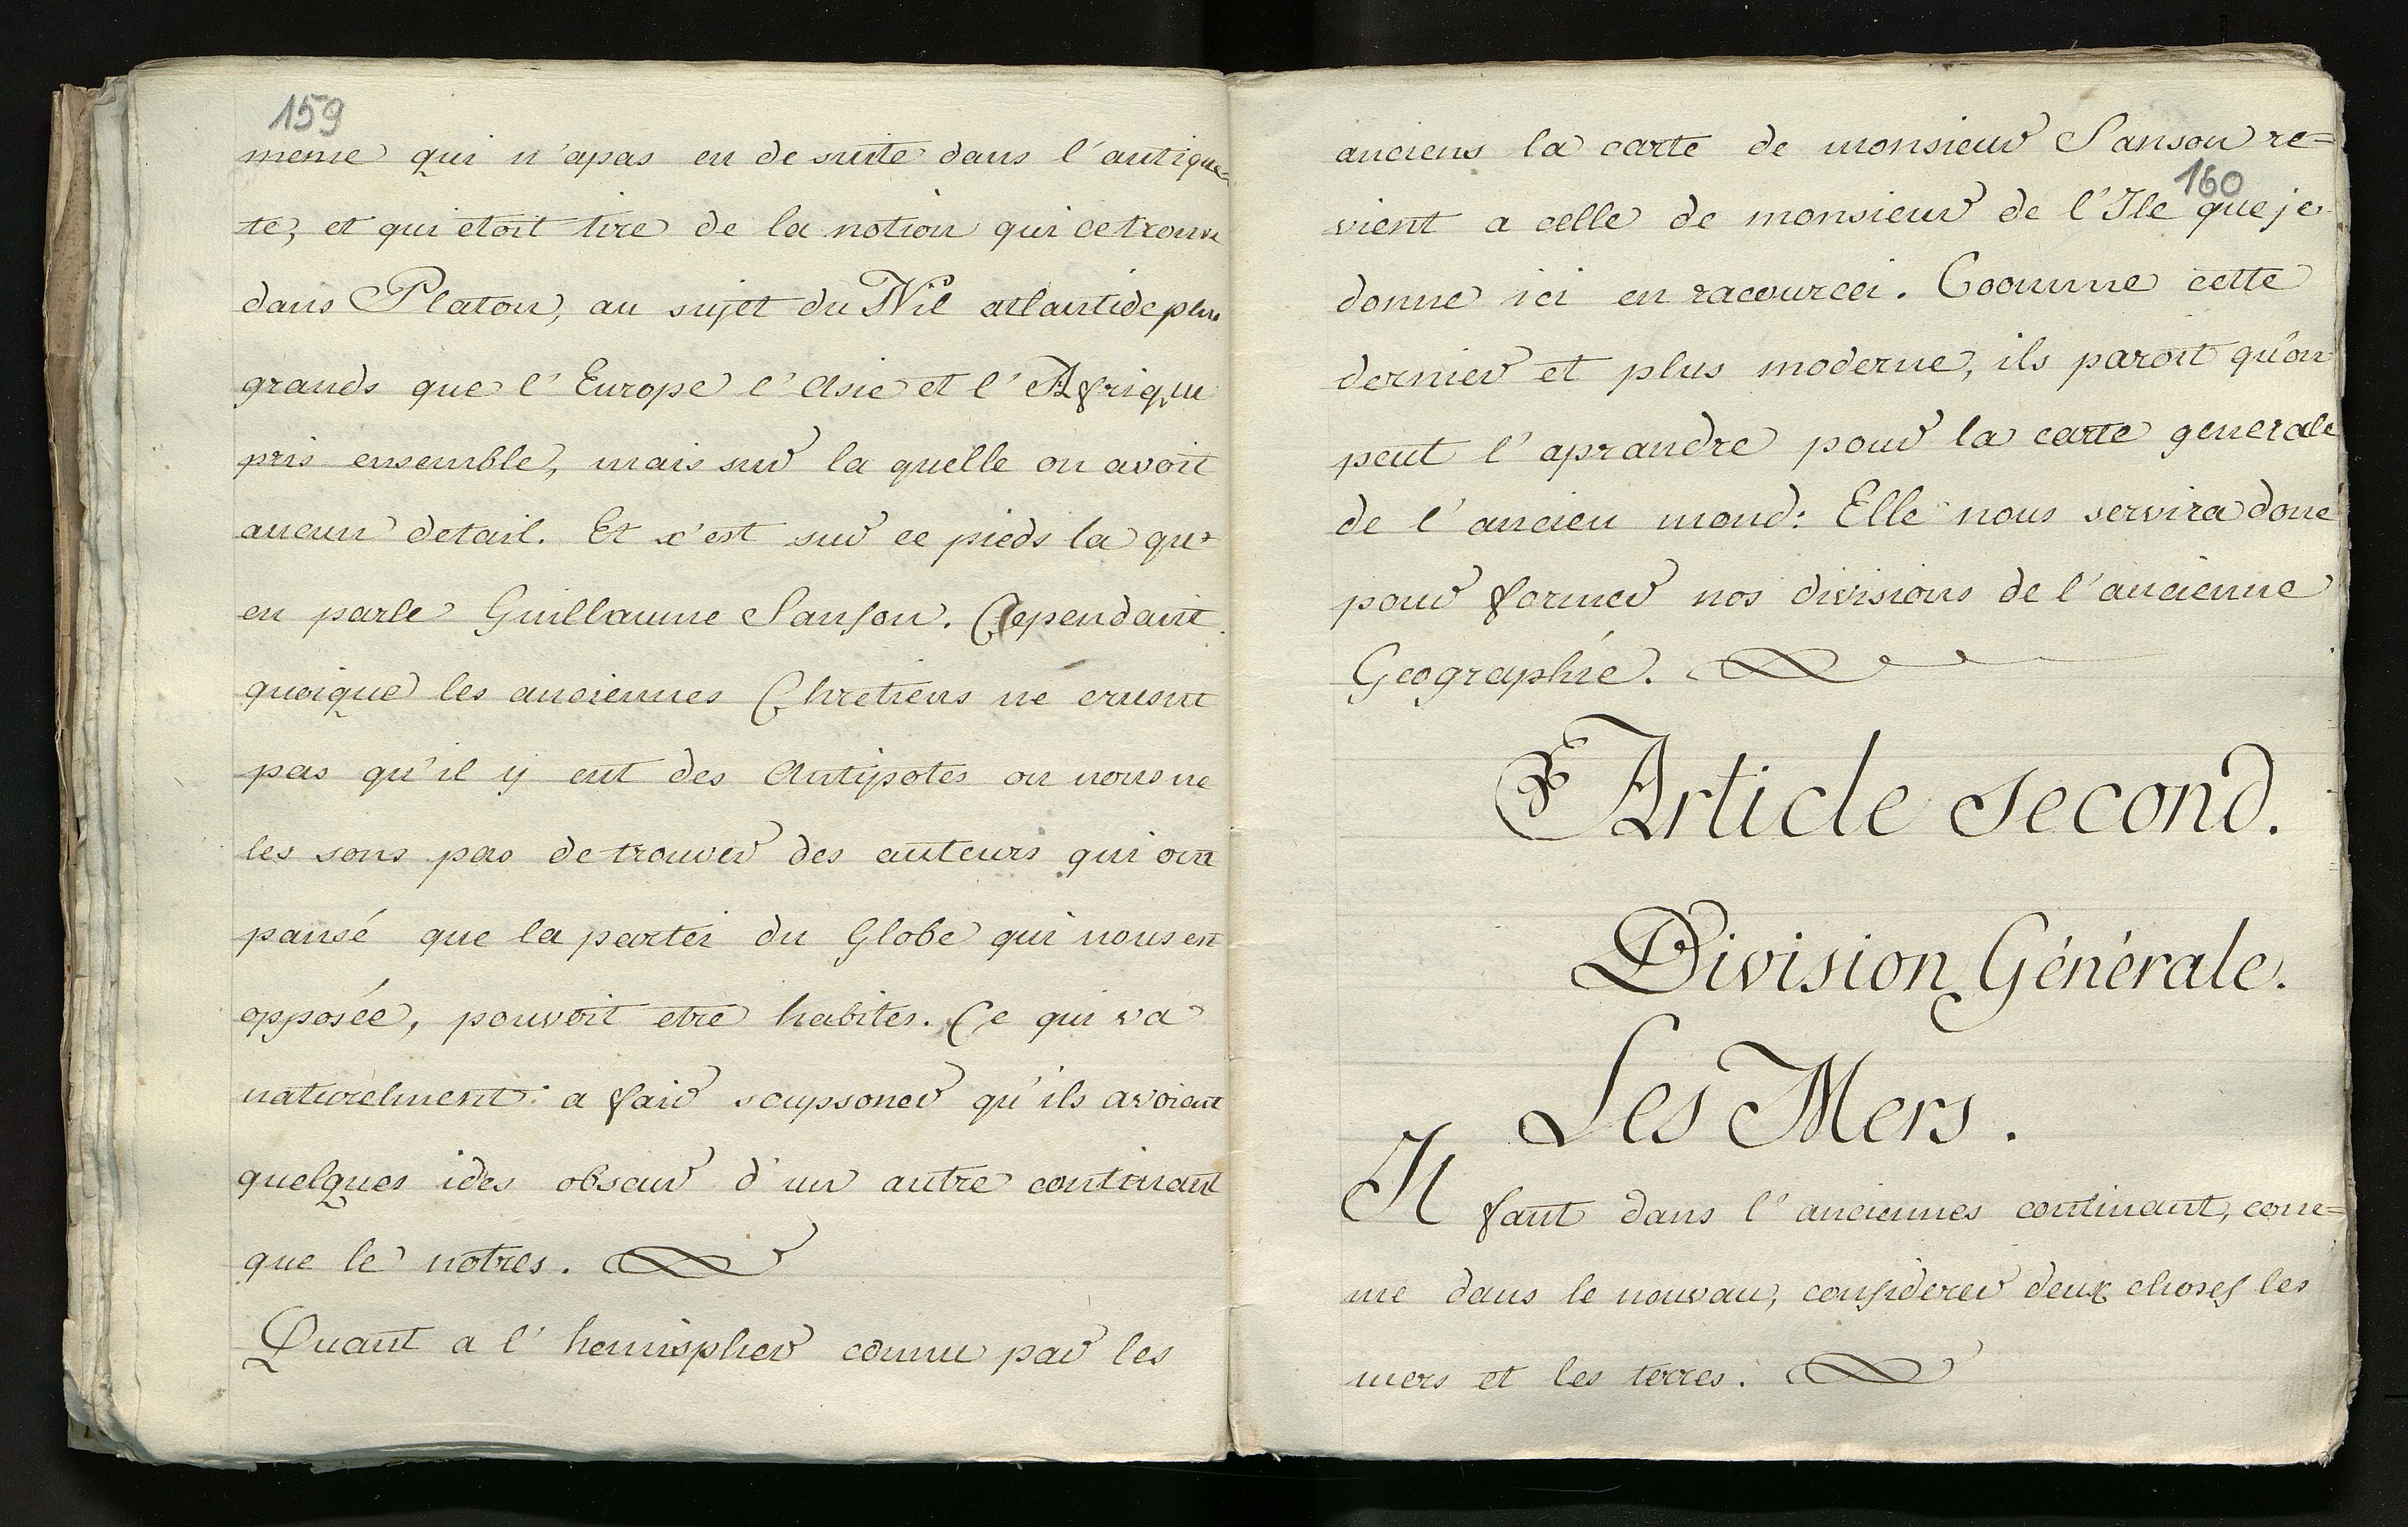 159
meme qui n'apas eu de suite dans l'antique=
te, et qui etoit tire de la notion qui cetrouve
dans Platon, au sujet du Nil atlantide plus
grands que l'Europe l'Asie et l'Afrique
pris ensemble, mais sur la quelle on avoit
aucun detail. Et c'est sur ce pieds la qu'
en parle Guillaume Sanson. Cependant
quoique les anciennes Chretiens ne crusnt
pas qu'il y eut des Antipotes on nous ne
les sons pas de trouver des auteurs qui ont
pansé que la partei du Globe qui nous est
opposée, pouvoit etre habites. Ce qui va
naturelment a fair soupsoner qu'ils avoient
quelques ides obscur d'un autre continant
que le notres.
Quant a l'hemispher connu par les
160
anciens la carte de monsieur Sanson re=
vient a celle de monsieur de l'Ile que je
donne ici en racourcei. Coomme cette
dernier et plus moderne, ils paroit qu'on
peut l'aprandre pour la carte generale
de l'ancien mond: Elle nous servira donc
pour former nos divisions de l'ancienne
Geographie.
Article second.
Division Générale.
Les Mers.
Il faut dans l'anciennes continant, com=
me dans le nouvau, considerer deux choses les
mers et les terres.